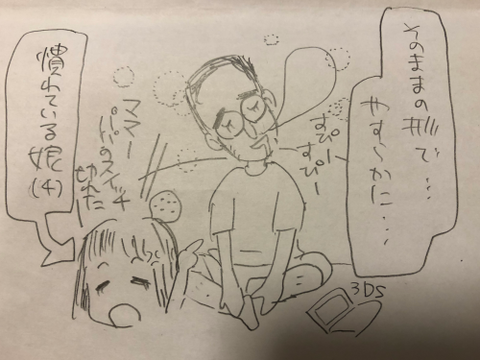 そのままの形で…
やすらかに…
すぴー
すぴー
ママー
パパのスイッチ
切れた
慣れている娘(4)
3DS